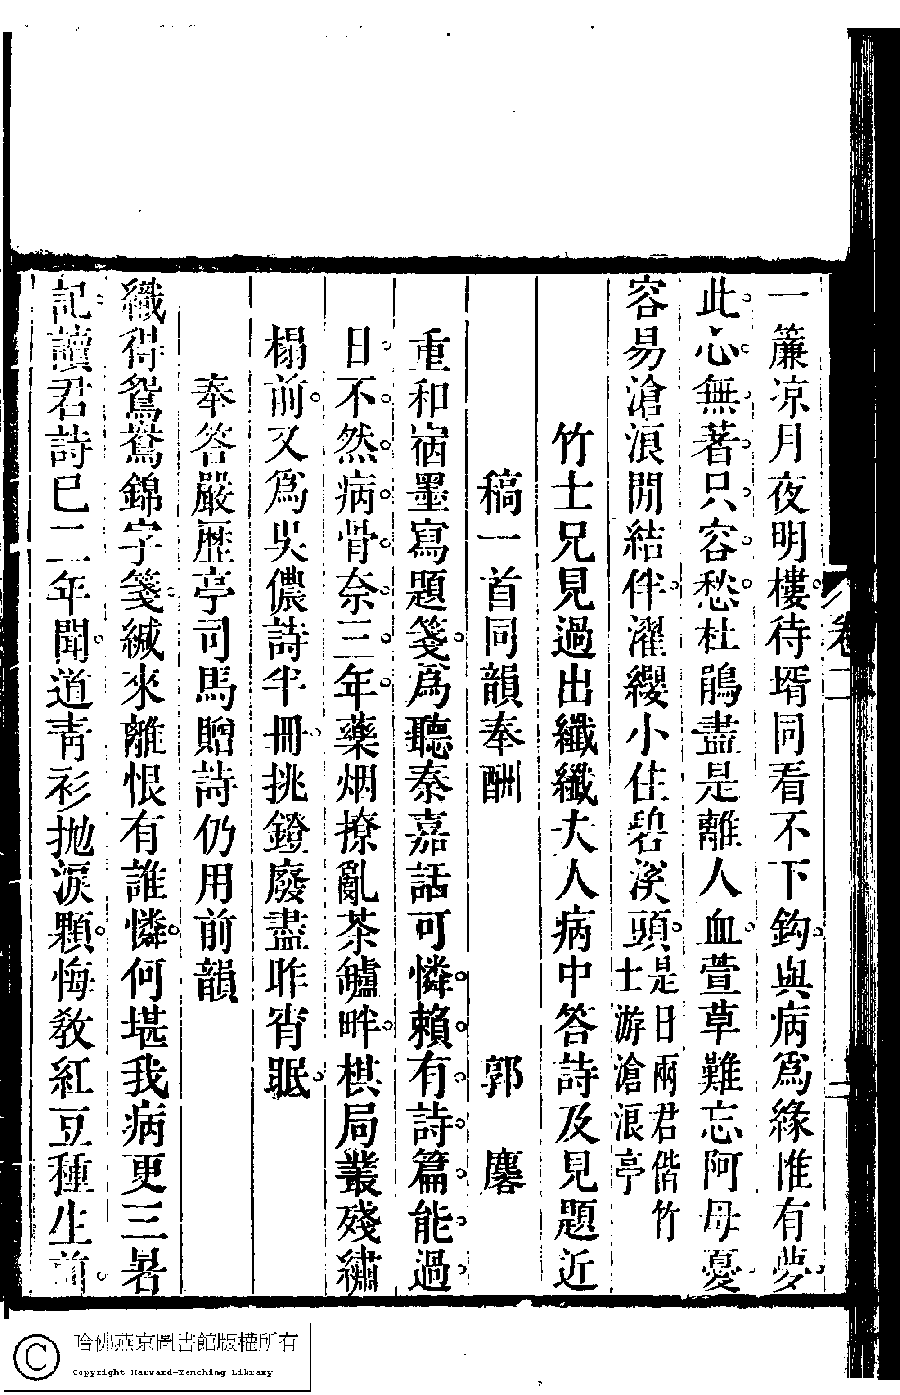 一簾凉月夜明樓待壻同看不下鈎與病爲緣惟有夢
此心無著只容愁杜鵑盡是離人血萱草難忘阿母憂
容易滄浪閒結伴濯纓小住碧溪頭是日兩君偕竹
士游滄浪亭
竹士兄見過出纖纖大人病中答詩及見題近
稿一首同韻奉酬　郭麐
重和宿墨寫題箋爲聽秦嘉話可憐賴有詩篇能過
日不然病骨奈三年藥烟撩亂茶鑪畔棋局叢殘繡
榻前又爲吳儂詩半冊挑鐙廢盡昨宵眠
奉答嚴歷亭司馬贈詩仍用前韻
織得鴛鴦錦字箋緘來離恨有誰憐何堪我病更三暑
記讀君詩已二年聞道靑衫抛淚顆悔敎紅豆種生前
卷二
二
哈佛燕京圖書館版權所有
Copyright Harvard-Yenching Library